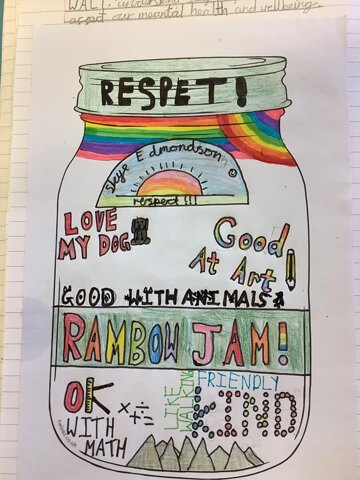 WALT: understand
aspect our meental health and wellbeing.
RESPET!
Skye Edmondson
respect!!!
LOVE
MY DOG
Good
At Art!
GOOD WITH ANIMALS
RAMBOW JAM!
OK
WITH
MATH
×-
+÷
LIKE
WALKING
FRIENDLY
KIND
twinkl.co.uk